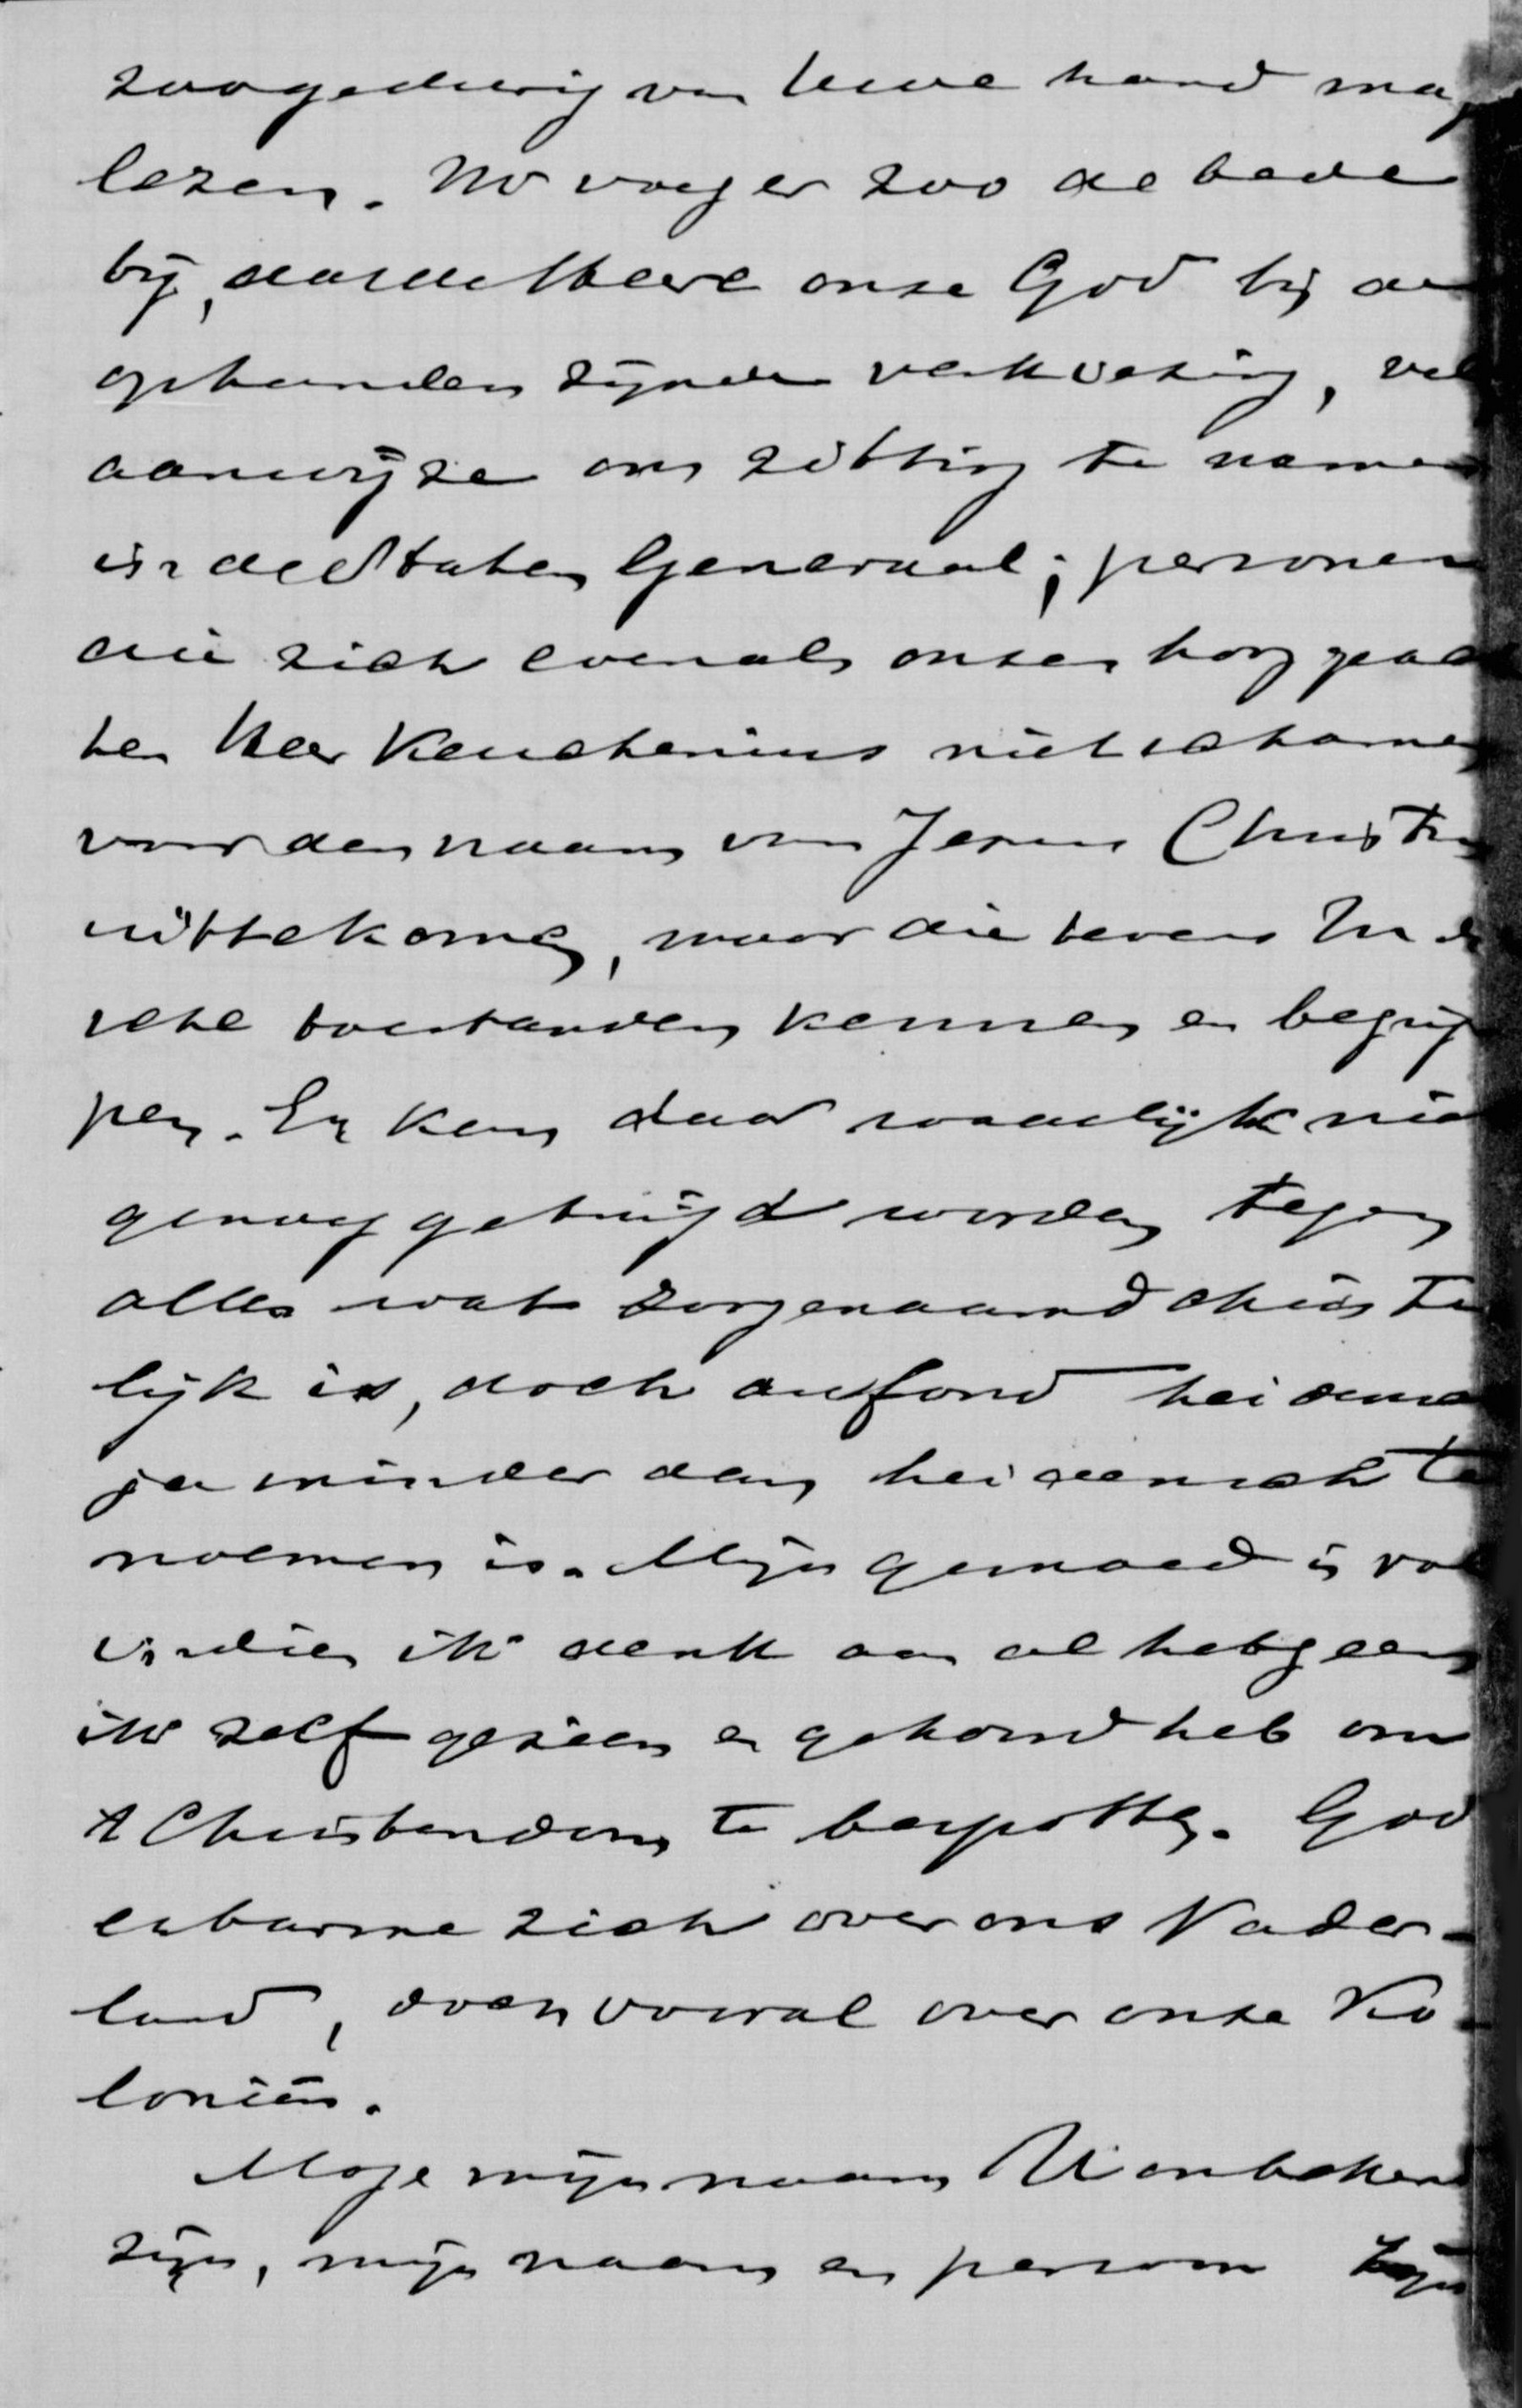 zoogedurig van Uwe hand mag
lezen. Ik voeg er zoo de bede
bij, dat de Heere onze God bij de
ophanden zijnde verkiezing, vele
aanwijze om zitting te nemen
in de Staten Generaal; personen
die zich evenals onzen hooggeach
ten Heer Keuchenius niet schamen
voor den naam van Jezus Christus
uittekomen, maar die tevens Indi
sche toestanden kennen en begrijp
pen. Er kan daar waarlijk niet
genoeg getuigd worden tegen
alles wat zoogenaamd christe
lijk is, doch au fond heidensch
ja minder dan heidensch te
noemen is. Mijn gemoed is vol
indien ik denk aan al hetgeen
ik zelf gezien en gehoord heb om
't Christendom te bespotten. God
erbarme zich over ons Vader-
land, doch vooral over onze Ko-
loniën.
Moge mijn naam U onbekend
zijn, mijn naam en persoon zijn